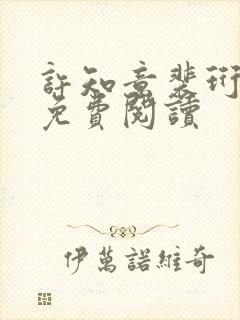 許知意裴珩
免費閱讀
伊萬諾維奇